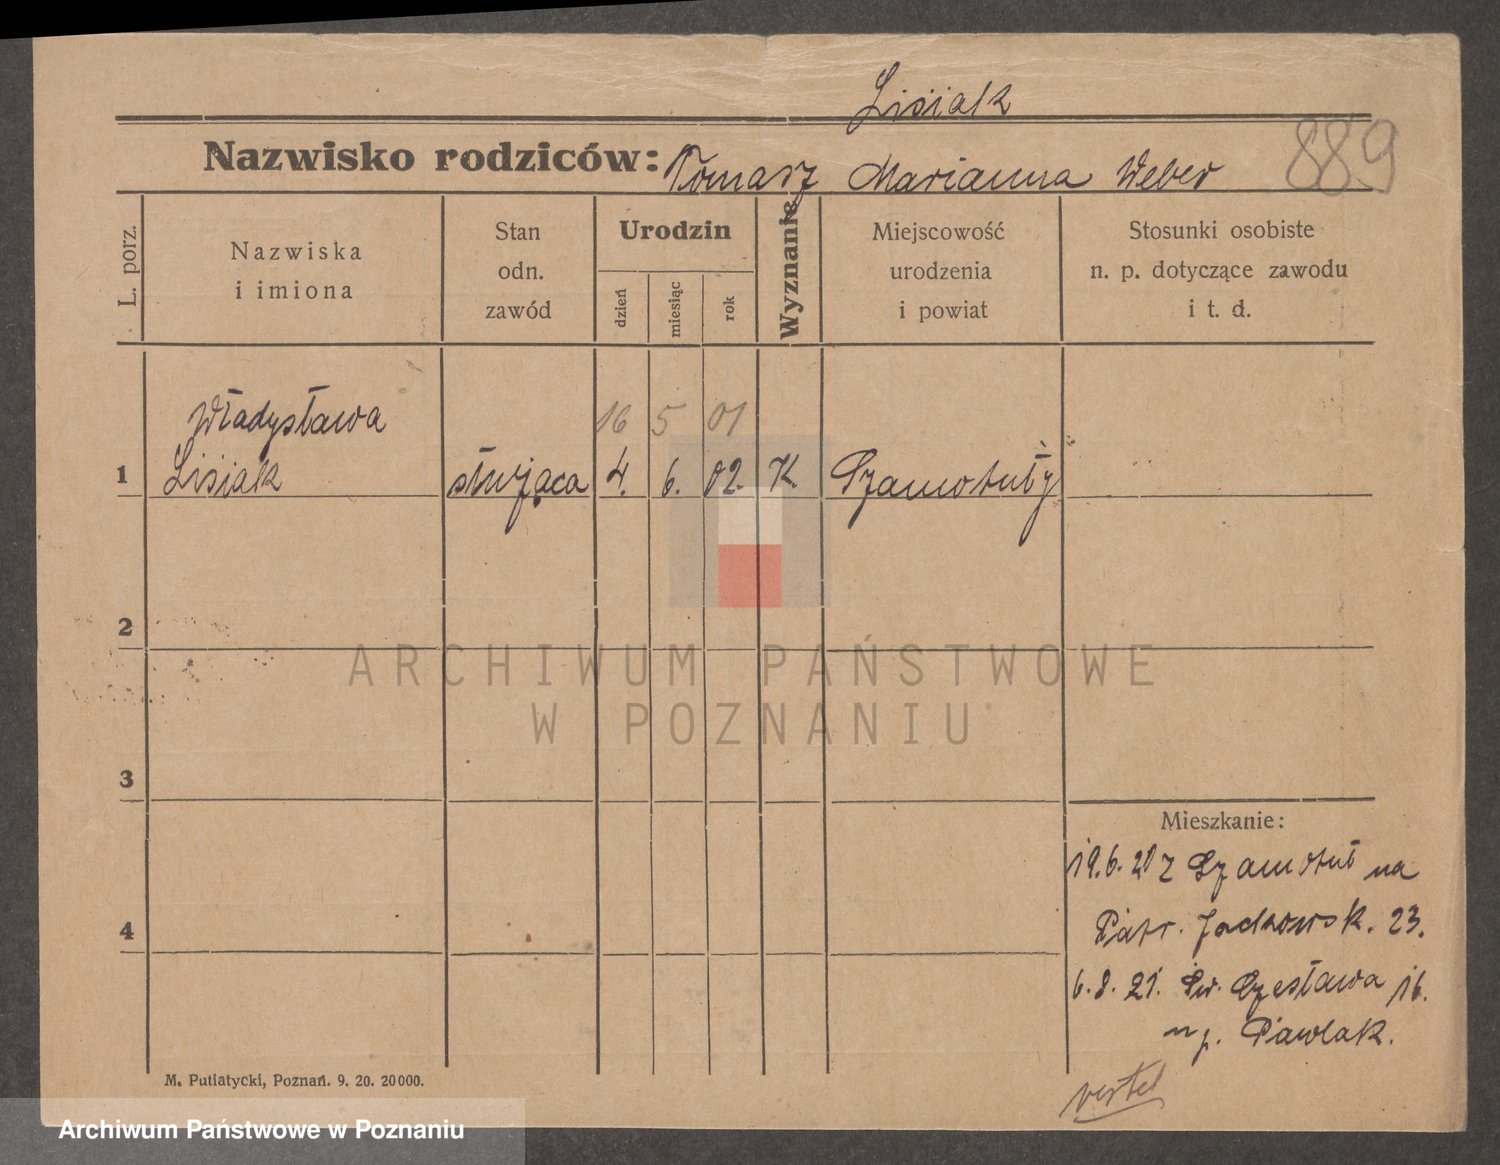 Lisiak
889
Nazwisko rodziców: Tomasz Marianna Weber
L. porz.
Nazwiska
i imiona
Stan
odn.
zawód
Urodzin
dzień
miesiąc
rok
Wyznanie
Miejscowość
urodzenia
i powiat
Stosunki osobiste
n. p. dotyczące zawodu
i t. d.
Władysława 16 5 01
1 Lisiak służąca 4. 6. 02. K. Szamotuły
2
ARCHIWUM PAŃSTWOWE
W POZNANIU
3
Mieszkanie:
19.6. z Szamotuł na
Patr. Jackowsk. 23.
4
6.8.21. Św. Czesława 16.
Pawlak.
M. Putiatycki, Poznań. 9. 20. 20000.
Archiwum Państwowe w Poznaniu